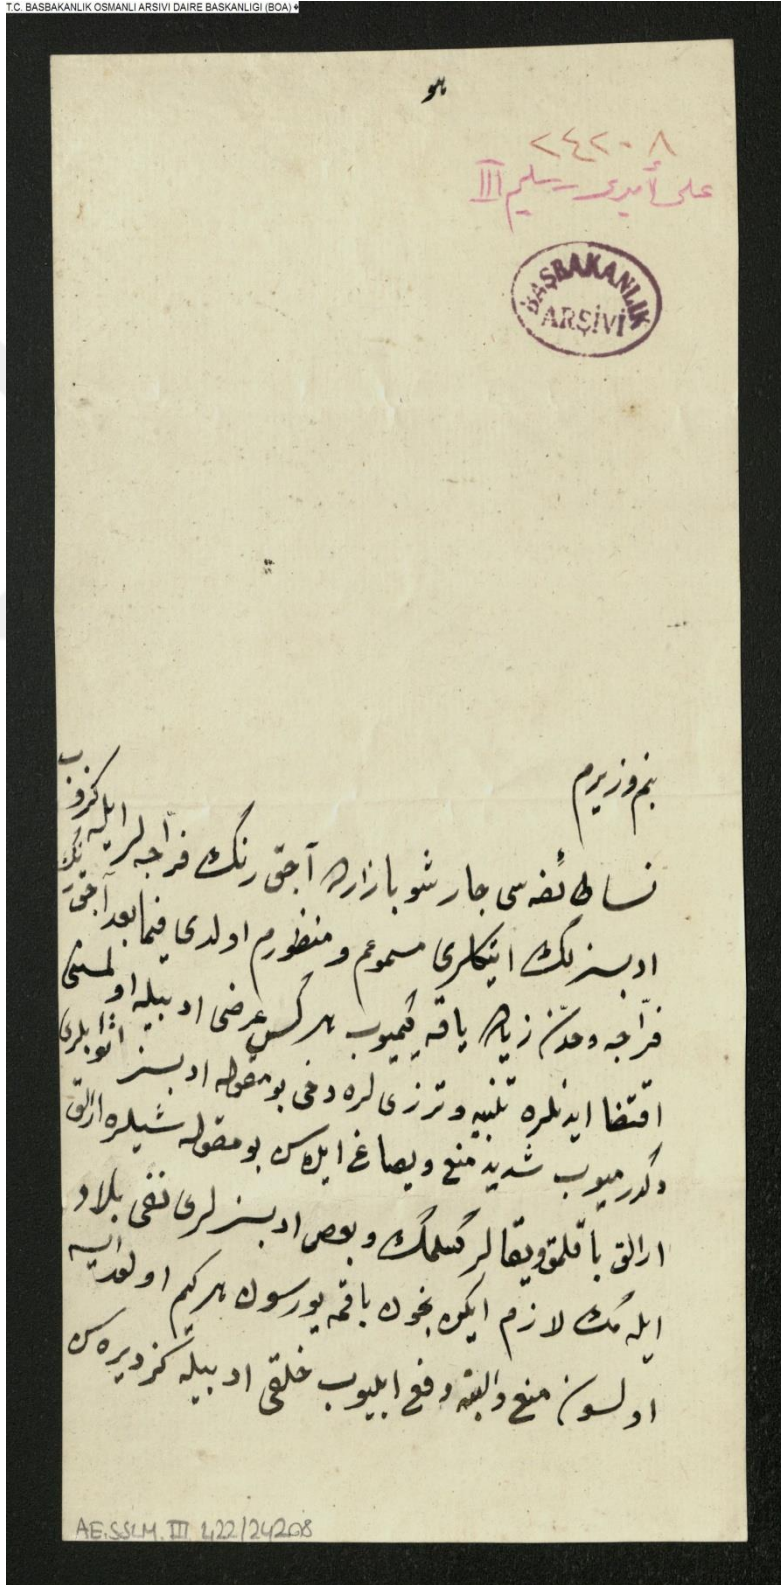 T.C. BASBAKANLIK OSMANLI ARSIVI DAIRE BASKANLIGI (BOA)
هو
٢٤٢٠٨
على أميرى سليم III
BAŞBAKANLIK
ARŞİVİ
بنم وزيرم
نسا طائفه سى چارشو بازارده آچق رنك فراجه لر ايله كزوب
ادبسزلك ايتدكلرى مسموعم و منظورم اولدى فيما بعد آچق رنك
فراجه وحددن زياده ياقه كيميوب هركس عرضى ادبيله اولمسنى
اقتضا ايدنلره تنبيه و ترزى لره دخى بو مقوله ادبسز اثوابلرى
ديكدرميوب شديد منع و يصاغ ايده سن بو مقوله شيلره ارالق
ارالق باقلمق ويقالر كسلمك وبعض ادبسزلرى نفى بلاد
ايله مك لازم ايكن نچون باقمه يورسون هر كيم اولور ايسه
اولسون منع والبته دفع ايليوب خلقى ادبيله كزديره سن
AE.SSLM.III 422/24208